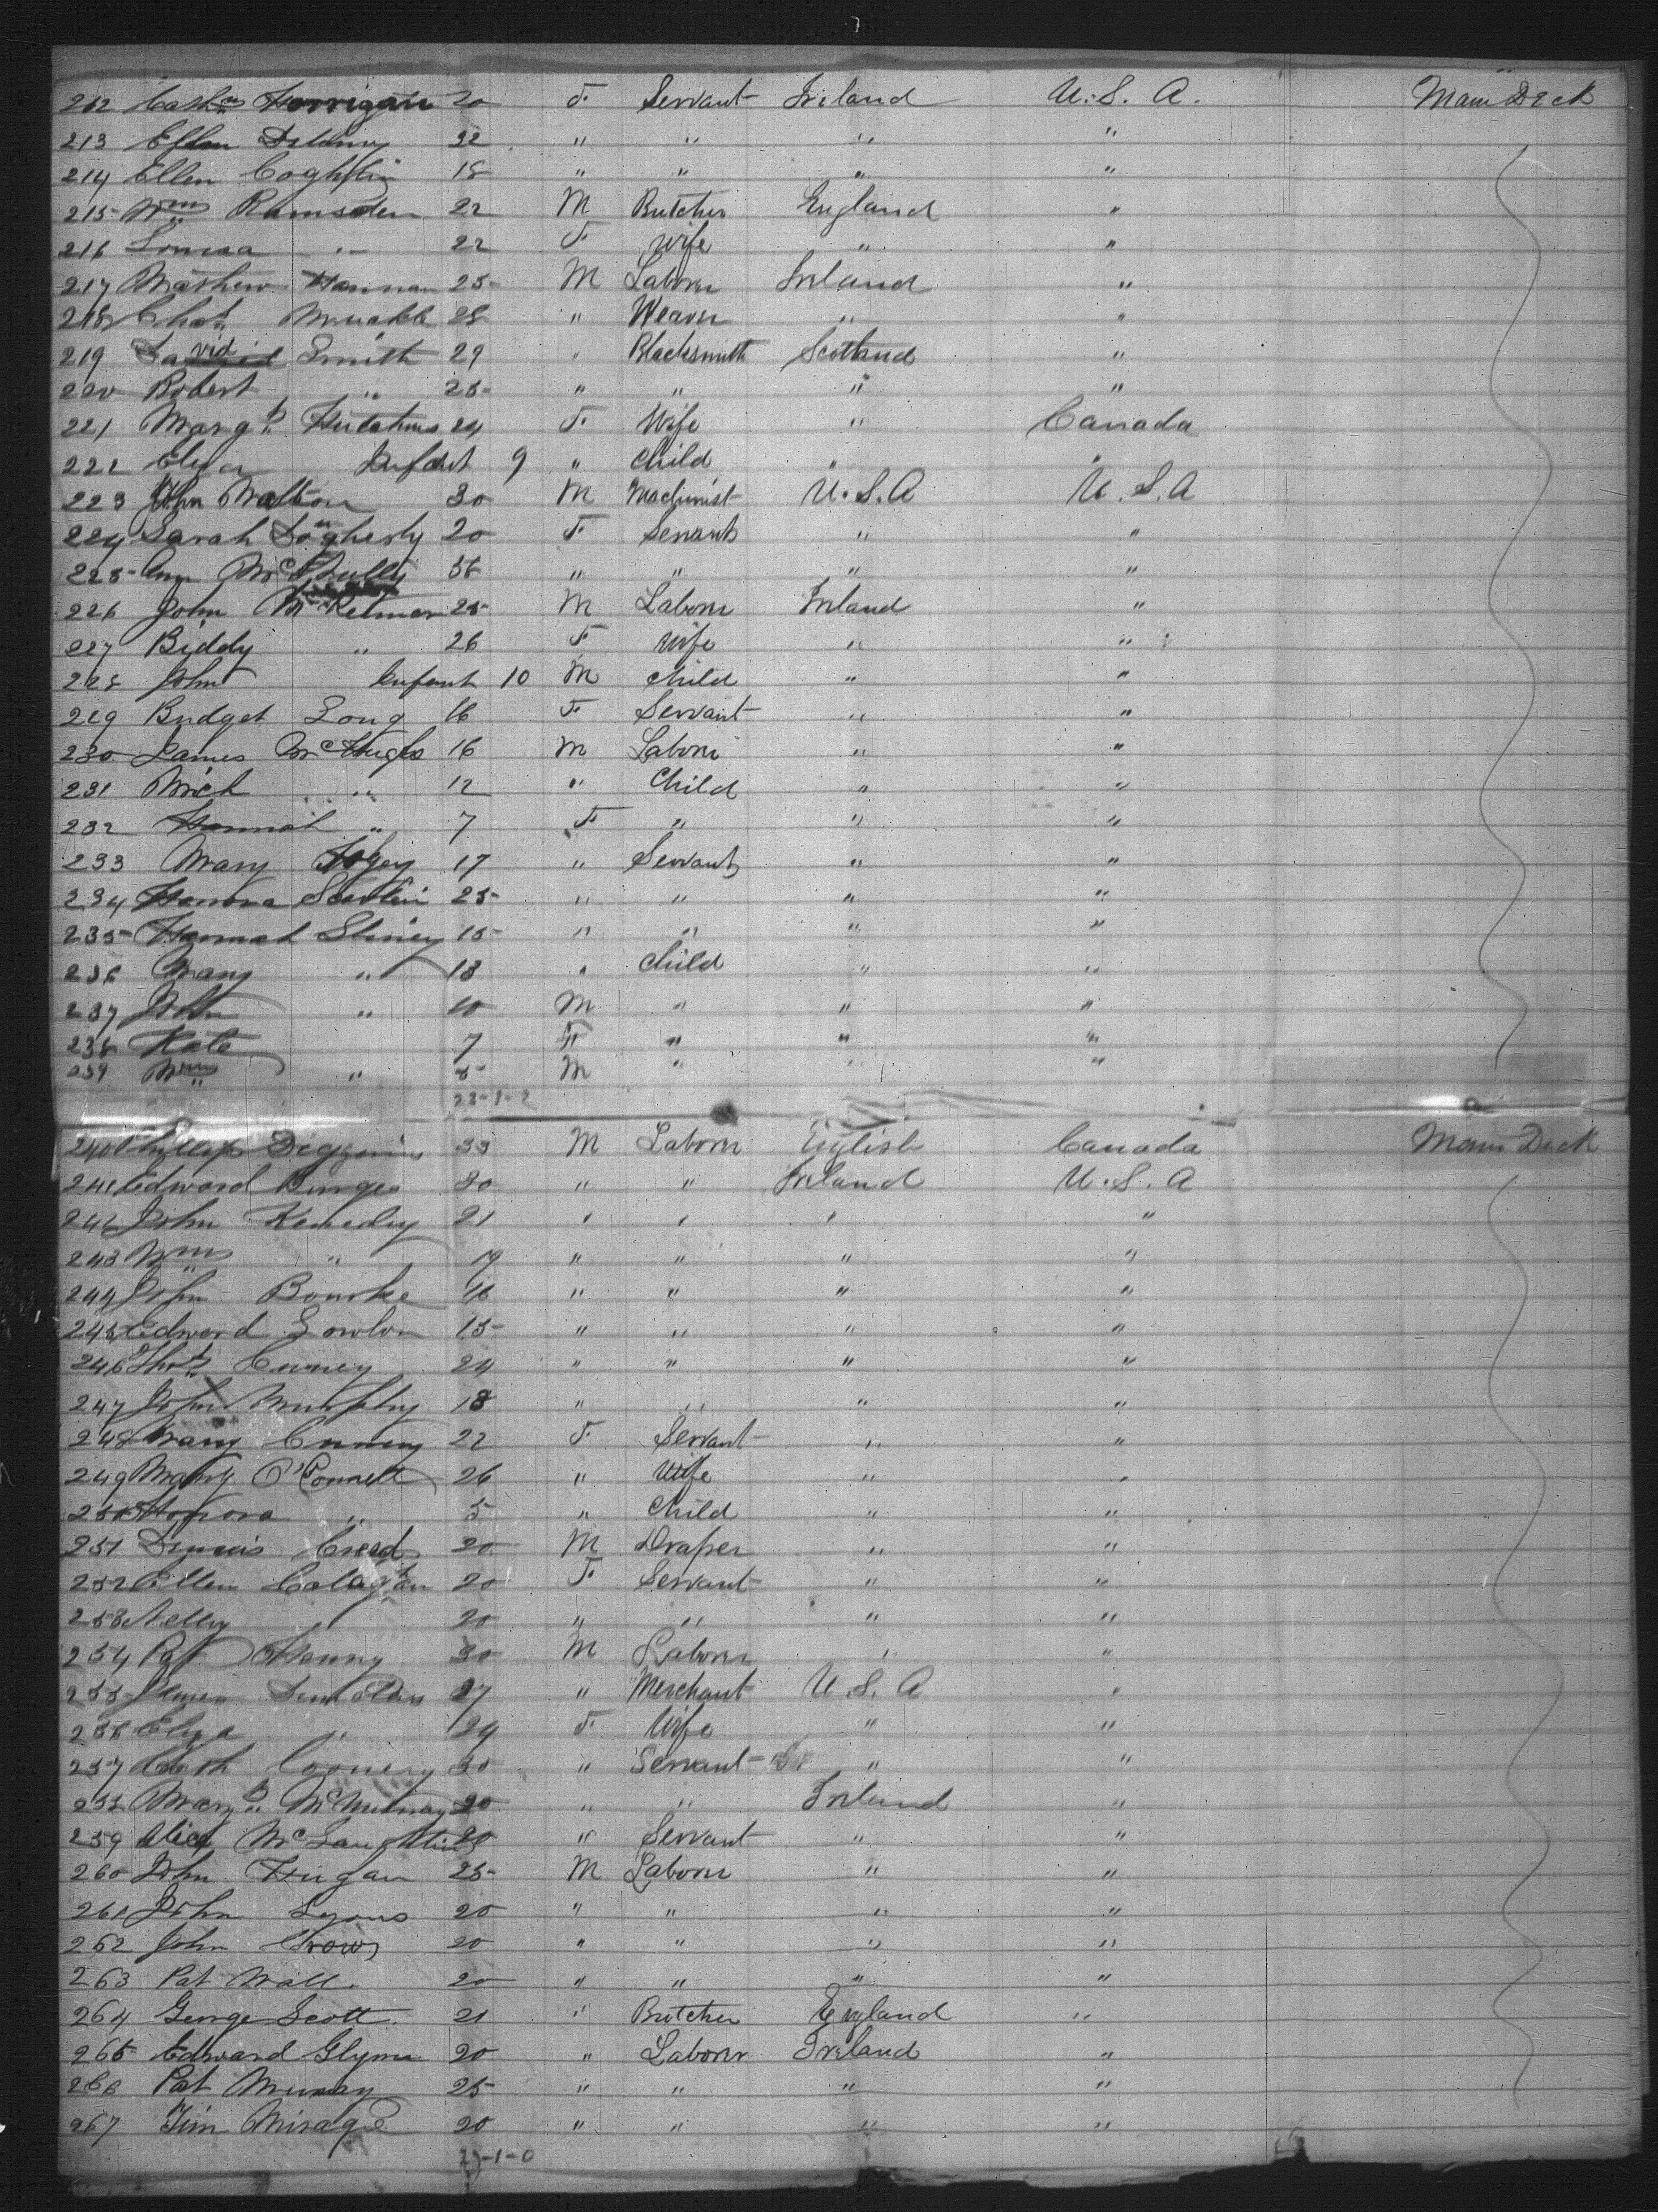 212 Cathe Horrigan 20 F. Servant Ireland U.S.A. Main Deck
213 Ellen 22 " " " "
214 Ellen Coghlin 18 " " " "
215 Wm Ramsden 22 M Butcher England "
216 Louisa " 22 F. Wife " "
217 Mathew Hannan 25 M Laborer Ireland "
218 Chas 28 " Weaver " "
219 David Smith 29 " Blacksmith Scotland "
220 Robert " 25 " " " "
221 Margt Hutchins 24 F. Wife " Canada
222 Eliza Infant 9 " Child " "
223 John Walton 30 M Machinist U.S.A U.S.A
224 Sarah Dogherty 20 F Servant " "
225 Ann 36 " " " "
226 John 25 M Laborer Ireland "
227 Biddy " 26 F Wife " "
228 John Infant 10 M Child " "
229 Bridget Long 16 F Servant " "
230 James McHugh 16 M Laborer " "
231 Mich " 12 " Child " "
232 Hannah " 7 F " " "
233 Mary 17 " Servant " "
234 Honora Scanlin 25 " " " "
235 Hannah Sliney 15 " " " "
236 Mary " 13 " Child " "
237 John " 10 M " " "
238 Kate 7 F " " "
239 Wm " 5 M " " "
23-1-2
240 Phillip 33 M Laborer English Canada Main Deck
241 Edward Burges 30 " " Ireland U.S.A
242 John Kenedy 21 " " " "
243 Wm " 19 " " " "
244 John Bourke 16 " " " "
245 Edward 15 " " " "
246 Thos Cumey 24 " " " "
247 John Murphy 18 " " " "
248 Mary 22 F Servant " "
249 Mary O'Connell 26 " Wife " "
250 Honora " 5 " Child " "
251 Dennis Creed 20 M Draper " "
252 Ellen Calaghan 20 F Servant " "
253 Nelly " 20 " " " "
254 Pat Henny 30 M Laborer " "
255 James 27 " Merchant U.S.A "
256 Eliza " 24 F. Wife " "
257 Cath Coonery 30 " Servant " "
258 Margt McMurray 20 " " Ireland "
259 Alice McLaughlin 20 " Servant " "
260 John Hugan 25 M Laborer " "
261 John Lyons 20 " " " "
262 John Crows 20 " " " "
263 Pat Wall. 20 " " " "
264 George Scott 21 " Butcher England "
265 Edward Glynn 20 " Laborer Ireland "
266 Pat Murray 25 " " " "
267 Tim 20 " " " "
27-1-0